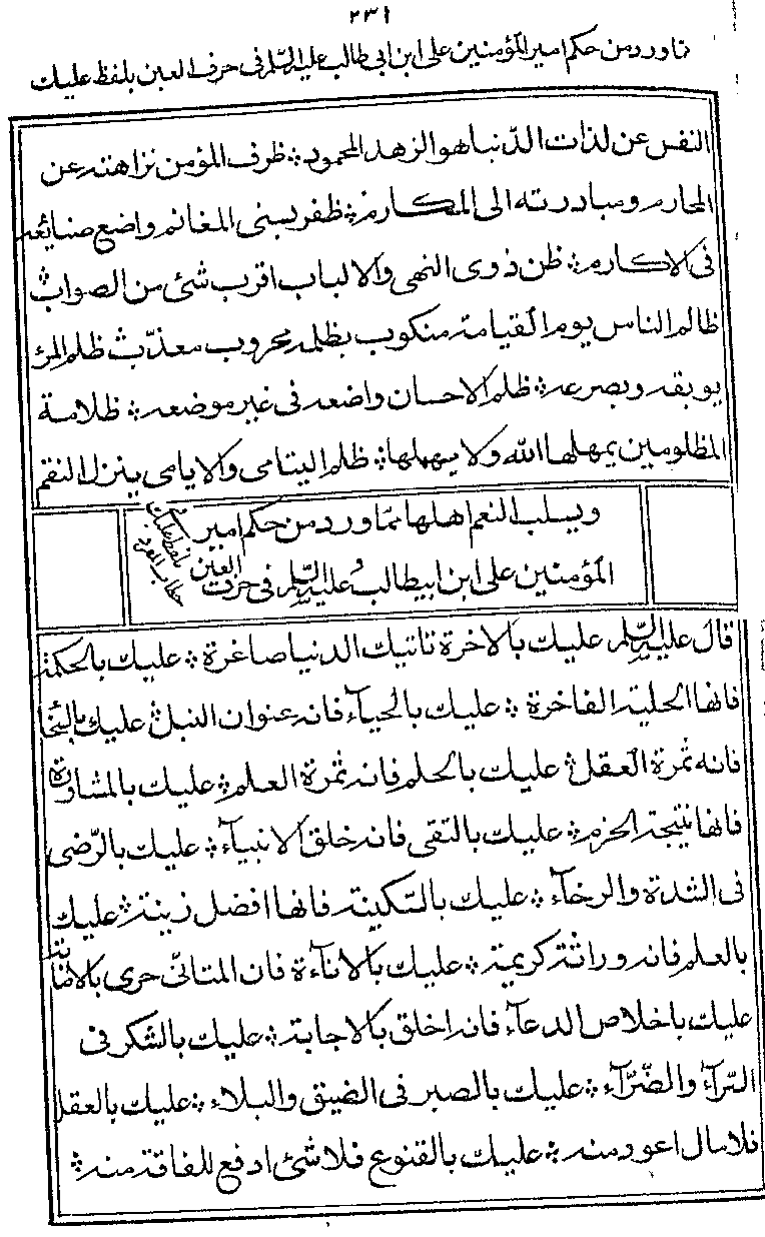 ٢٣١
مما ورد من حكم امير المؤمنين على ابن ابى طالب عليه السّلم فى حرف العين بلفظ عليك
النفس عن لذات الدّنيا هو الزهد المحمود ؞ ظرف المؤمن نزاهته عن
المحارم ومبادرته الى المكارم ؞ ظفر بسنى المغانم واضع صنائعه
فى الاكارم ؞ ظن ذوى النهى والالباب اقرب شئ من الصواب ؞
ظالم الناس يوم القيامة منكوب بظلمه محروب معذّب ؞ ظلم المرء
يوبقه ويصرعه ؞ ظلم الاحسان واضعه فى غير موضعه ؞ ظلامة
المظلومين يمهلها الله ولا يهملها ؞ ظلم اليتامى والايامى ينزل النقم
ويسلب النعم اهلها مما ورد من حكم امير
المؤمنين على ابن ابيطالب عليه السّلم فى حرف العين
بلفظ عليك
خطاب المفرد
قال عليه السّلم عليك بالاخرة تاتيك الدنيا صاغرة ؞ عليك بالحكمة
فانها الحلية الفاخرة ؞ عليك بالحيآء فانه عنوان النبل ؞ عليك بالسّخا
فانه ثمرة العقل ؞ عليك بالحلم فانه ثمرة العلم ؞ عليك بالمشاورة
فانها نتيجة الحزم ؞ عليك بالتقى فانه خلق الانبيآء ؞ عليك بالرّضى
فى الشدة والرخآء ؞ عليك بالسّكينة فانها افضل زينة ؞ عليك
بالعلم فانه وراثة كريمة ؞ عليك بالاناءة فان المتانّى حرى بالاصابة
عليك باخلاص الدعآء فانه اخلق بالاجابة ؞ عليك بالشكر فى
السّرآء والضّرآء ؞ عليك بالصبر فى الضيق والبلاء ؞ عليك بالعقل
فلا مال اعود منه ؞ عليك بالقنوع فلا شئ ادفع للفاقة منه ؞